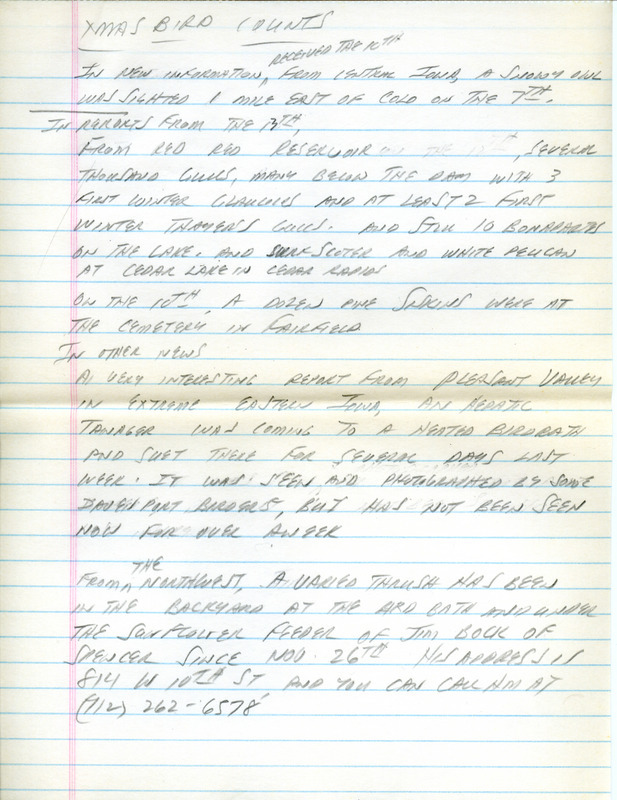 XMAS BIRD COUNTS
RECEIVED THE 10TH
IN NEW INFORMATION, FROM CENTRAL IOWA, A SNOWY OWL
WAS SIGHTED 1 MILE EAST OF COLO ON THE 7TH.
IN REPORTS FROM THE 13TH,
FROM RED RED RESERVOIR, SEVERAL
THOUSAND GULLS, MANY BELOW THE DAM WITH 3
FIRST WINTER GLAUCOUS AND AT LEAST 2 FIRST
WINTER THAYER'S GULLS. AND STILL 10 BONAPARTES
ON THE LAKE. AND SURF SCOTER AND WHITE PELICAN
AT CEDAR LAKE IN CEDAR RAPIDS
ON THE 10TH, A DOZEN PINE SISKINS WERE AT
THE CEMETERY IN FAIRFIELD
IN OTHER NEWS
A VERY INTERESTING REPORT FROM PLEASANT VALLEY
IN EXTREME EASTERN IOWA, AN HEPATIC
TANAGER WAS COMING TO A HEATED BIRDBATH
AND SUET THERE FOR SEVERAL DAYS LAST
WEEK. IT WAS SEEN AND PHOTOGRAPHED BY SOME
DAVENPORT BIRDERS, BUT HAS NOT BEEN SEEN
NOW FOR OVER A WEEK
FROM THE NORTHWEST, A VARIED THRUSH HAS BEEN
IN THE BACKYARD AT THE BIRD BATH AND UNDER
THE SUNFLOWER FEEDER OF JIM BOCK OF
SPENCER SINCE NOV. 26TH HIS ADDRESS IS
814 W 10TH ST, AND YOU CAN CALL HIM AT
(712) 262-6578